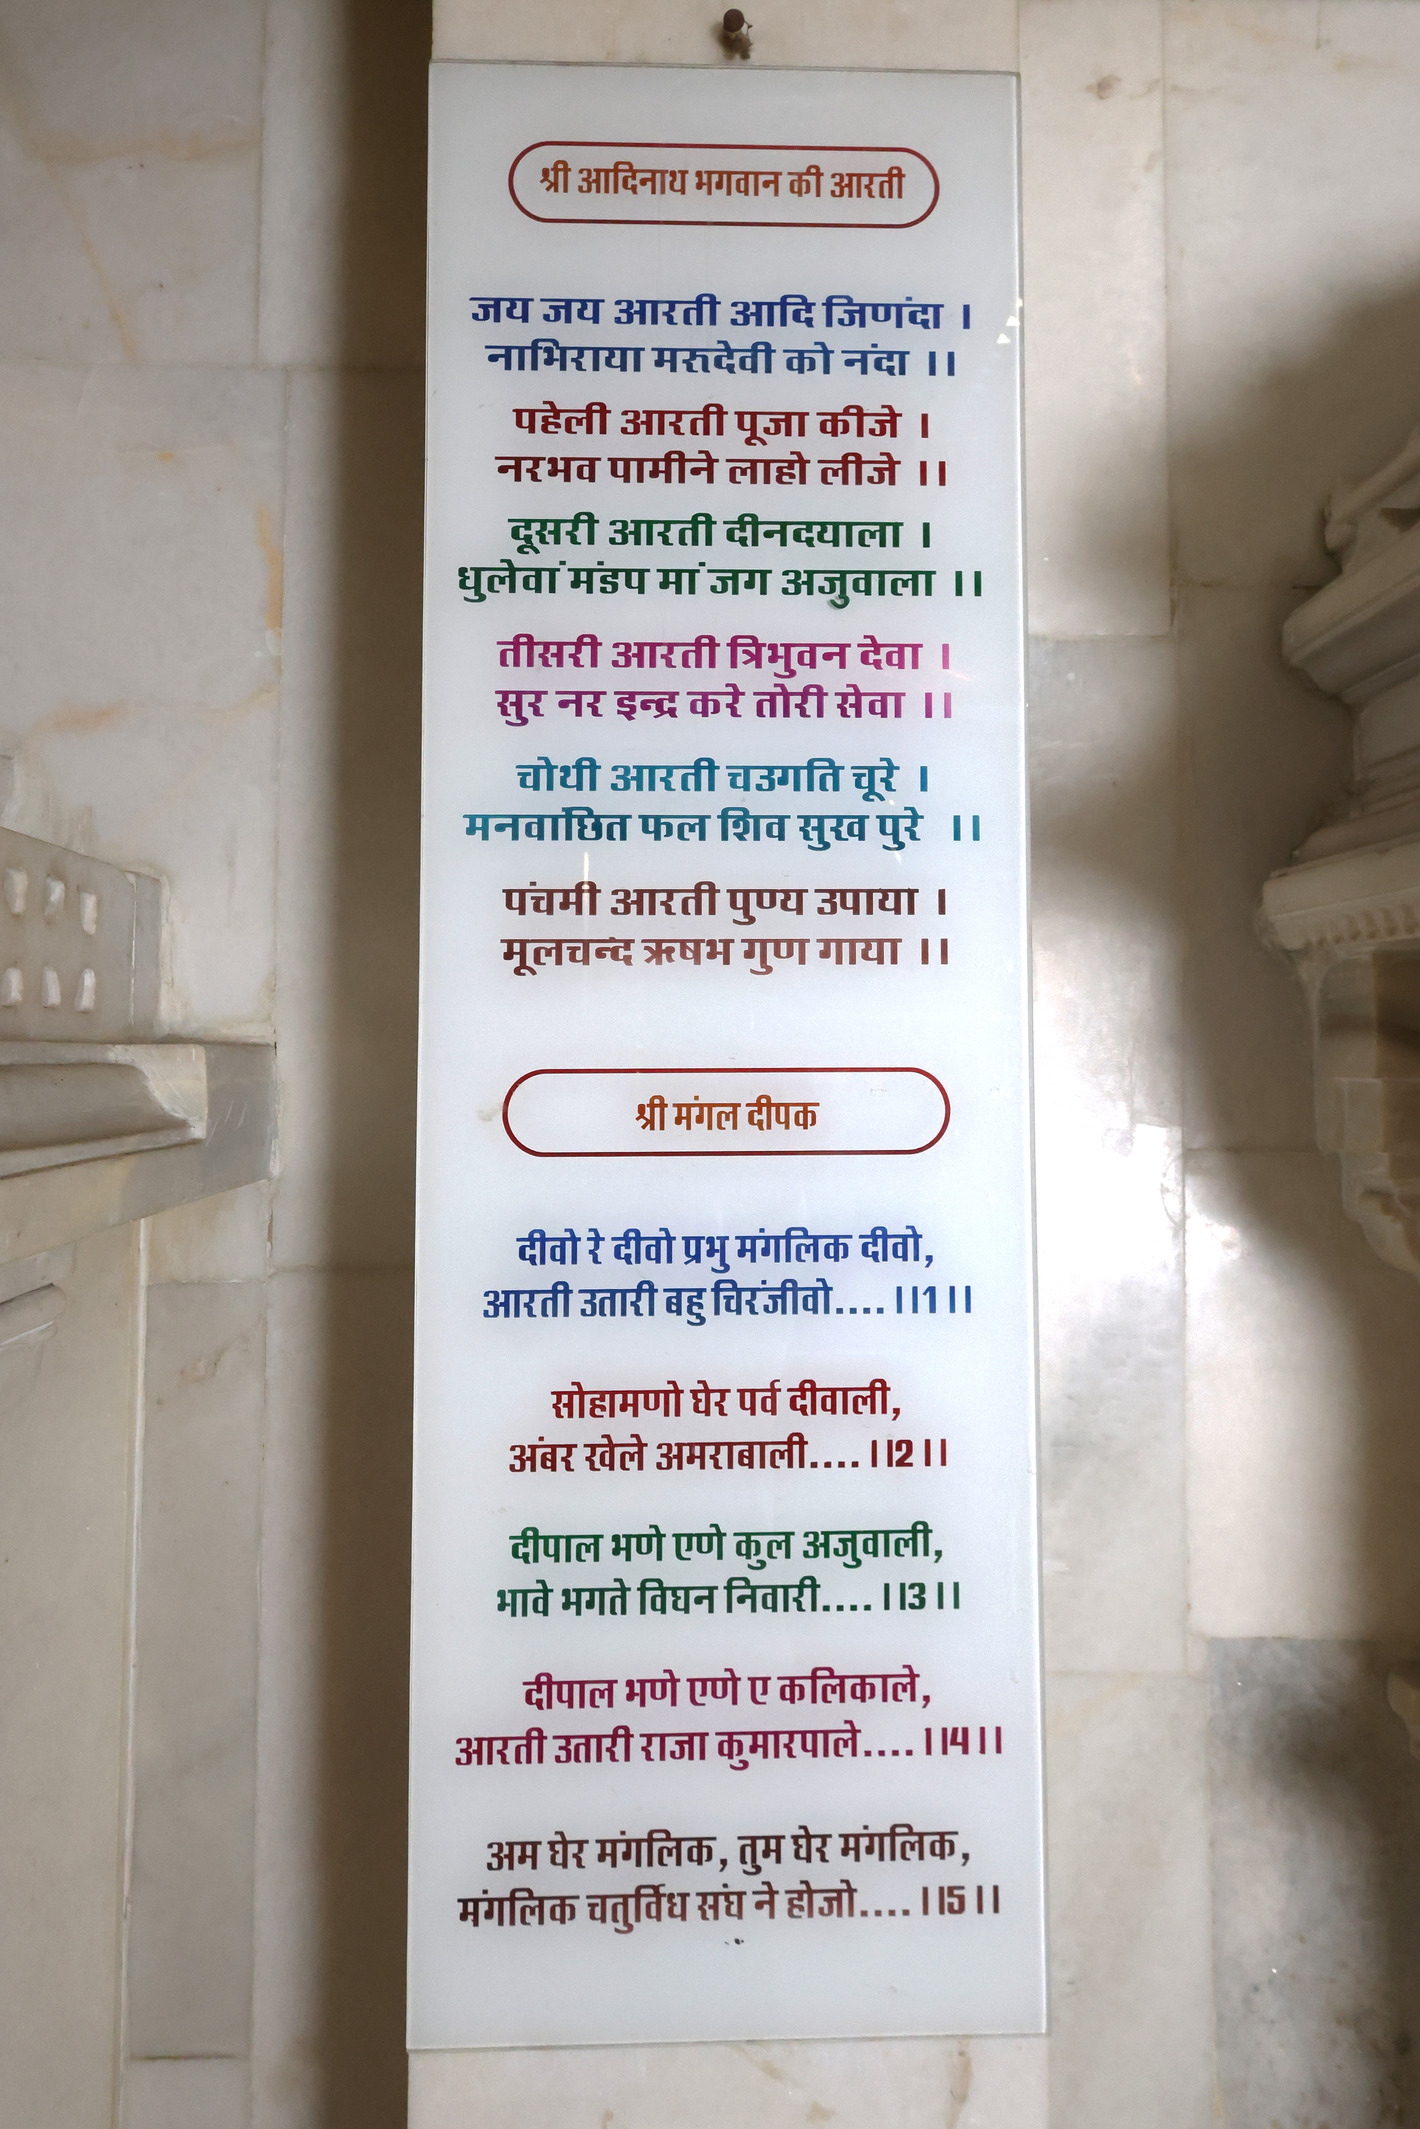 श्री आदिनाथ भगवान की आरती
जय जय आरती आदि जिणंदा ।
नाभिराया मरुदेवी को नंदा ।।
पहेली आरती पूजा कीजे ।
नरभव पामीने लाहो लीजे ।।
दूसरी आरती दीनदयाला ।
धुलेवां मंडप मां जग अजुवाला ।।
तीसरी आरती त्रिभुवन देवा ।
सुर नर इन्द्र करे तोरी सेवा ।।
चोथी आरती चउगति चूरे ।
मनवांछित फल शिव सुख पुरे ।।
पंचमी आरती पुण्य उपाया ।
मूलचन्द ऋषभ गुण गाया ।।
श्री मंगल दीपक
दीवो रे दीवो प्रभु मंगलिक दीवो,
आरती उतारी बहु चिरंजीवो....।।1।।
सोहामणो घेर पर्व दीवाली,
अंबर खेले अमराबाली....।।2।।
दीपाल भणे एणे कुल अजुवाली,
भावे भगते विघन निवारी....।।3।।
दीपाल भणे एणे ए कलिकाले,
आरती उतारी राजा कुमारपाले....।।4।।
अम घेर मंगलिक, तुम घेर मंगलिक,
मंगलिक चतुर्विध संघ ने होजो....।।5।।